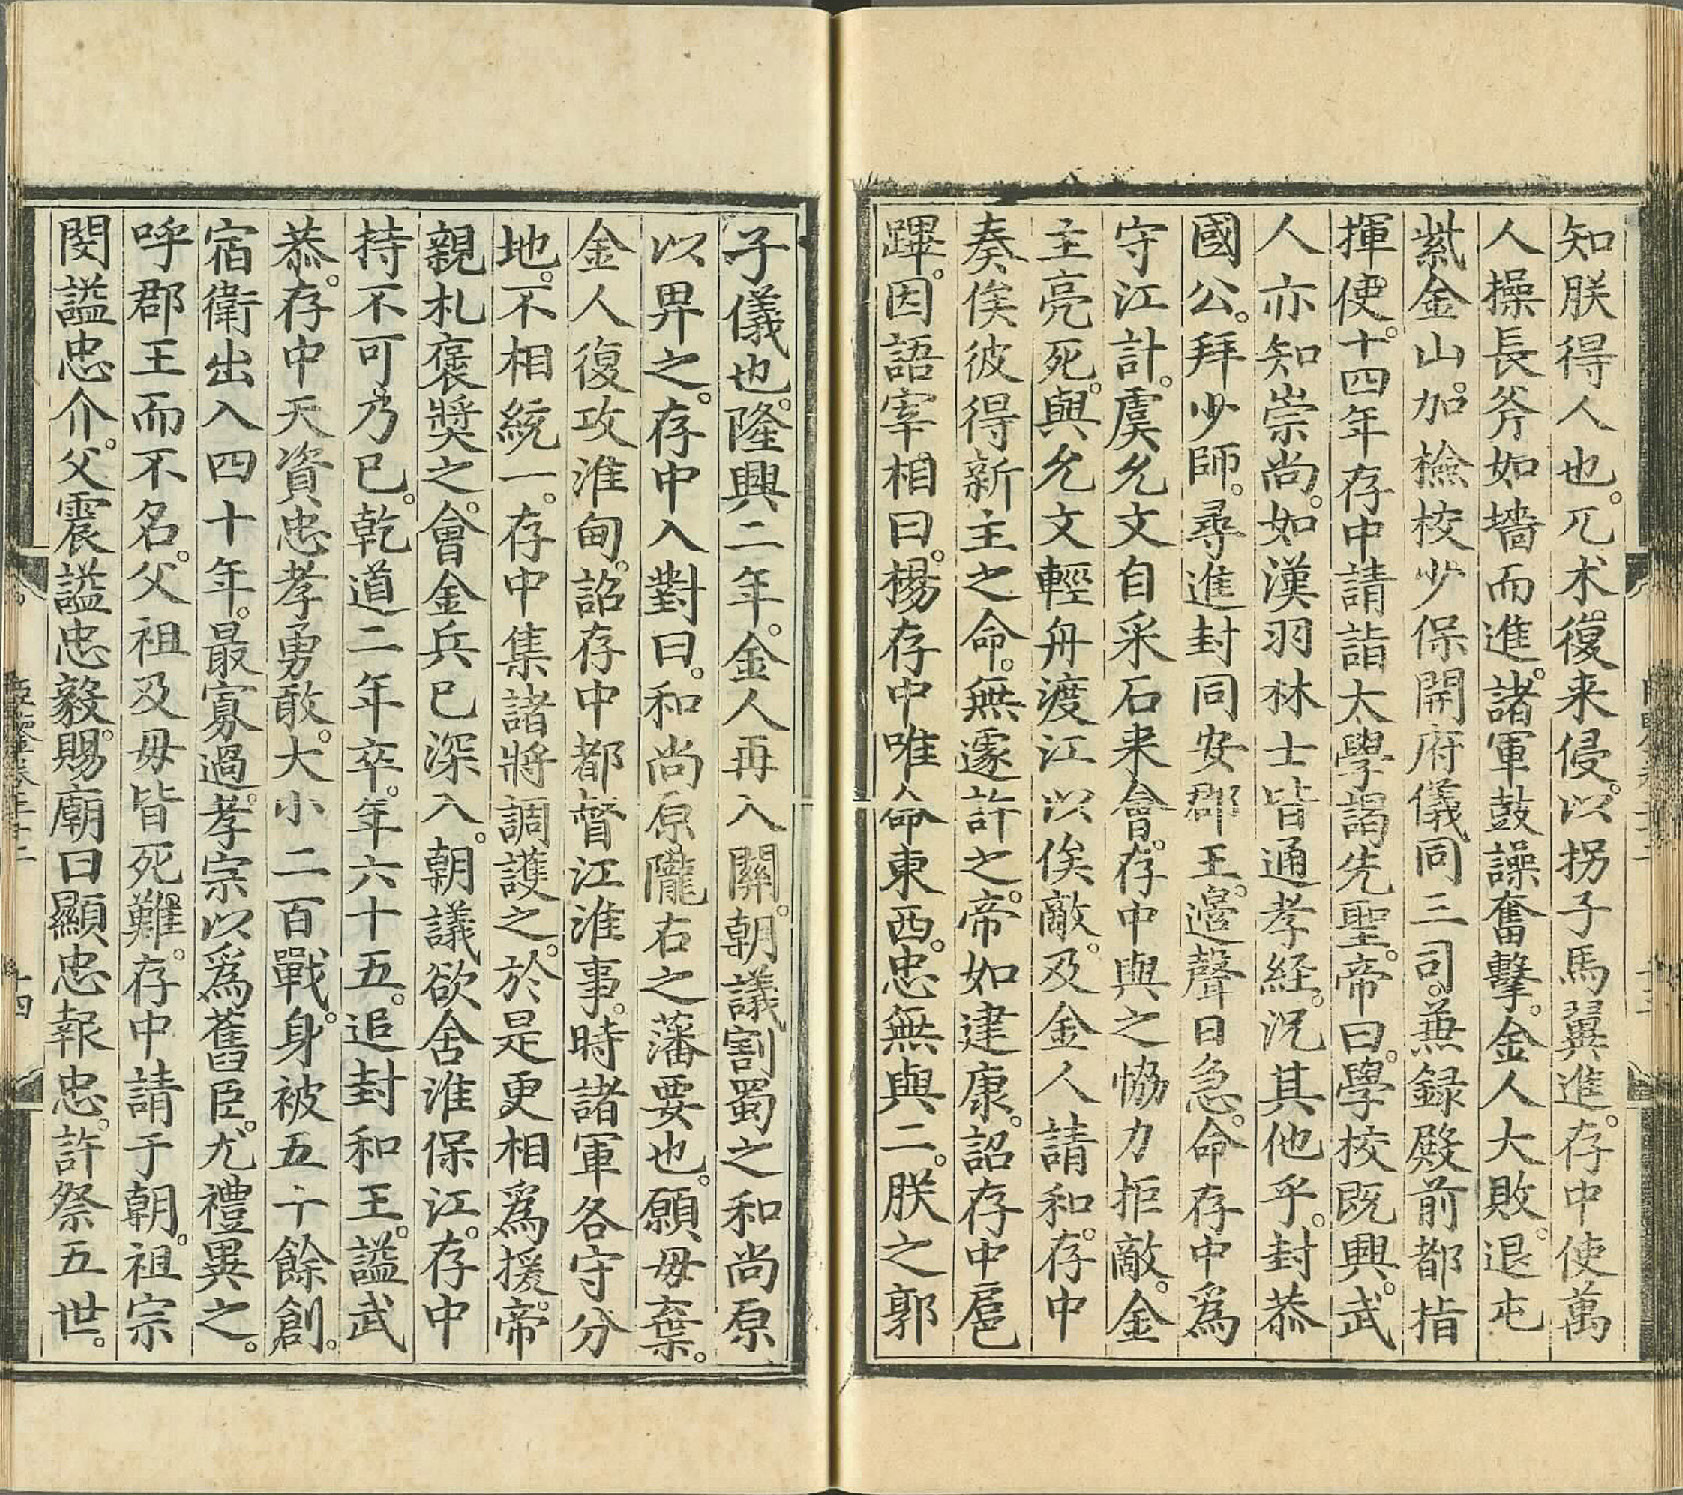 知朕得人也。兀术。復来侵。以拐子馬翼進。存中使萬
人操長斧如墻而進。諸軍鼓譟奮擊。金人大敗。退屯
紫金山。加檢校少保開府儀同三司。兼録殿前都指
揮使。十四年存中請詣太學謁先聖。帝曰。學校既興。武
人亦知崇尚。如漢羽林士皆通孝経。況其他乎。封恭
國公。拜少師。尋進封同安郡王。邊聲日急。命存中為
守江計。虞允文自采石来會。存中與之恊力拒敵。金
主亮死。與允文輕舟渡江以俟敵。及金人請和。存中
奏俟彼得新主之命。無遽許之。帝如建康。詔存中扈
蹕。因語宰相曰。楊存中唯命東西。忠無與二。朕之郭
子儀也。隆興二年。金人再入關。朝議割蜀之和尚原
以畀之。存中入對曰。和尚原隴右之藩要也。願毋棄。
金人復攻淮甸。詔存中都督江淮事。時諸軍各守分
地。不相統一。存中集諸將調護之。於是更相爲援。帝
親札褒奬之。會金兵已深入。朝議欲舍淮保江。存中
持不可乃已。乾道二年卒。年六十五。追封和王。謚武
恭。存中天資忠孝勇敢。大小二百戰。身被五十餘創。
宿衛出入四十年。最寡過。孝宗以爲舊臣。尤禮異之。
呼郡王而不名。父祖及毋皆死難。存中請于朝。祖宗
閔謚忠介。父震謚忠毅。賜廟曰顯忠報忠。許祭五世。
十四